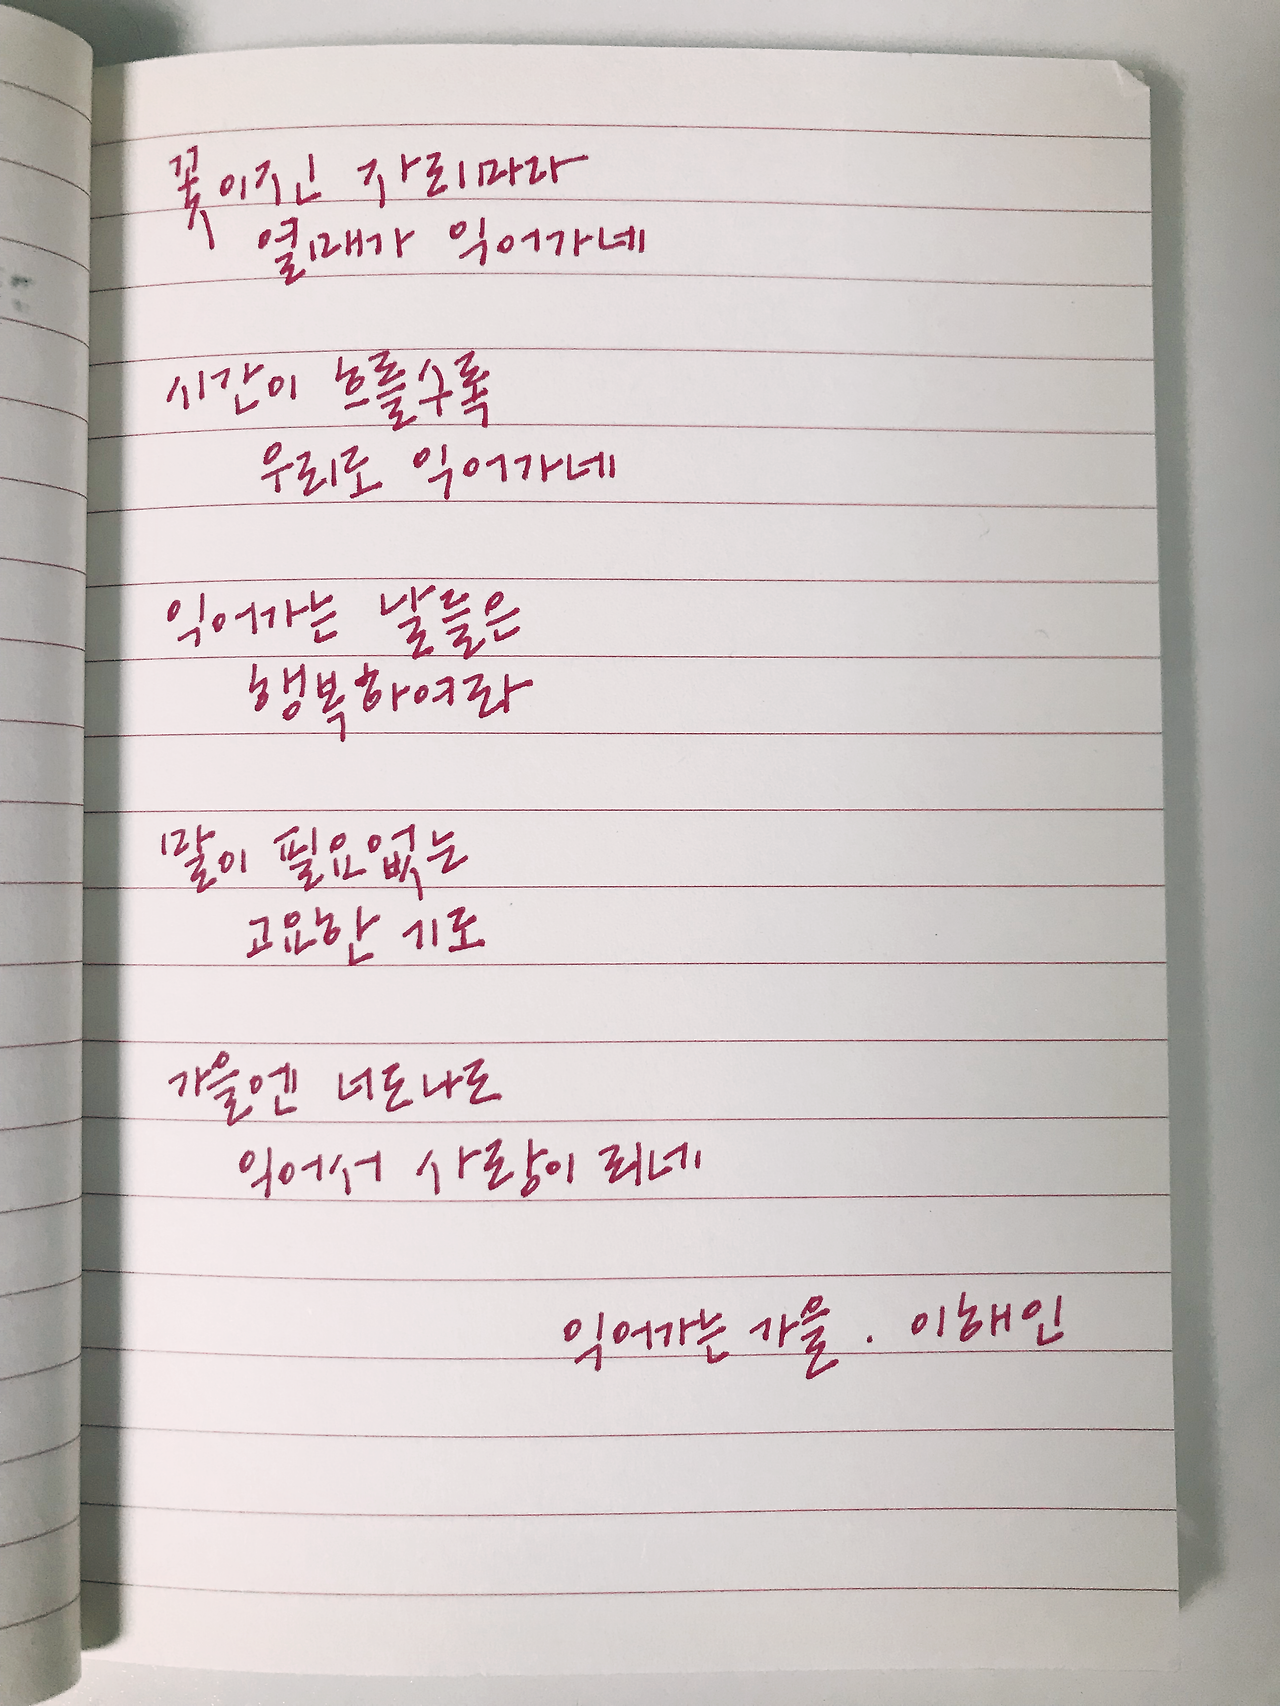 꽃이진 자리마다
열매가 익어가네
시간이 흐를수록
우리도 익어가네
익어가는 날들은
행복하여라
말이 필요없는
고요한 기도
가을엔 너도나도
익어서 사랑이 되네
익어가는 가을 . 이해인